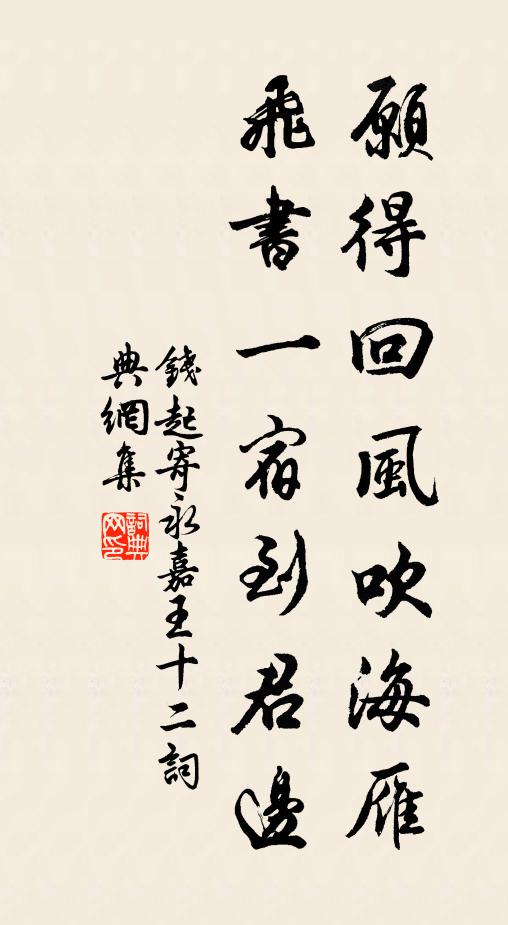 願得回風吹海雁
飛書一宿到君邊
錢起寄永嘉王十二詞
典網集
詞典網印